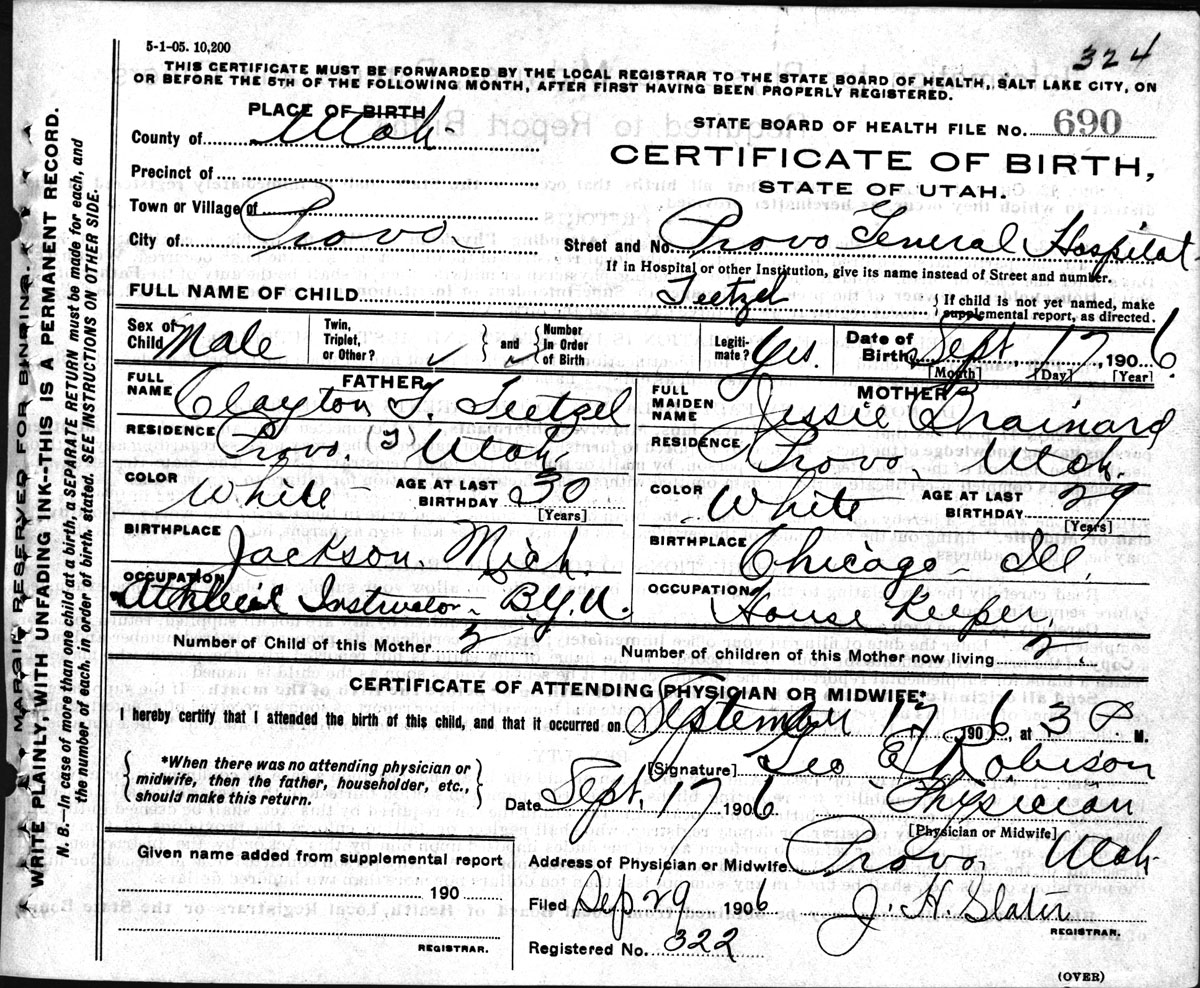 5-1-05. 10,200
324
THIS CERTIFICATE MUST BE FORWARDED BY THE LOCAL REGISTRAR TO THE STATE BOARD OF HEALTH, SALT LAKE CITY, ON
OR BEFORE THE 5TH OF THE FOLLOWING MONTH, AFTER FIRST HAVING BEEN PROPERLY REGISTERED.
PLACE OF BIRTH
STATE BOARD OF HEALTH FILE No. 690
County of Utah
CERTIFICATE OF BIRTH,
Precinct of
STATE OF UTAH.
Town or Village of
City of Provo
Street and No. Provo General Hospital
If in Hospital or other Institution, give its name instead of Street and number.
FULL NAME OF CHILD Teetzel { If child is not yet named, make supplemental report, as directed.
Sex of Child Male Twin, Triplet, or Other? ✓ } and { Number In Order of Birth ✓ Legiti-mate? Yes. Date of Birth Sept. 17, 1906
[Month] [Day] [Year]
FATHER
FULL NAME Clayton T. Teetzel
RESIDENCE Provo, Utah
COLOR White AGE AT LAST BIRTHDAY 30
[Years]
BIRTHPLACE Jackson, Mich.
OCCUPATION Athletic Instructor - B.Y.U.
MOTHER
FULL MAIDEN NAME Jessie Brainard
RESIDENCE Provo Utah
COLOR White AGE AT LAST BIRTHDAY 29
[Years]
BIRTHPLACE Chicago - Ill.
OCCUPATION House Keeper
Number of Child of this Mother 2 Number of children of this Mother now living 2
CERTIFICATE OF ATTENDING PHYSICIAN OR MIDWIFE*
I hereby certify that I attended the birth of this child, and that it occurred on September 17 1906, at 3 P. M.
*When there was no attending physician or
midwife, then the father, householder, etc.,
should make this return.
[Signature] Geo E Robison
Date Sept. 17 1906 Physician
[Physician or Midwife]
Given name added from supplemental report
190
REGISTRAR.
Address of Physician or Midwife Provo, Utah
Filed Sep. 29 1906 J. H. Slater
REGISTRAR.
Registered No. 322
(OVER)
MARGIN RESERVED FOR BINDING.
WRITE PLAINLY, WITH UNFADING INK--THIS IS A PERMANENT RECORD.
N. B.—In case of more than one child at a birth, a SEPARATE RETURN must be made for each, and
the number of each, in order of birth, stated. SEE INSTRUCTIONS ON OTHER SIDE.